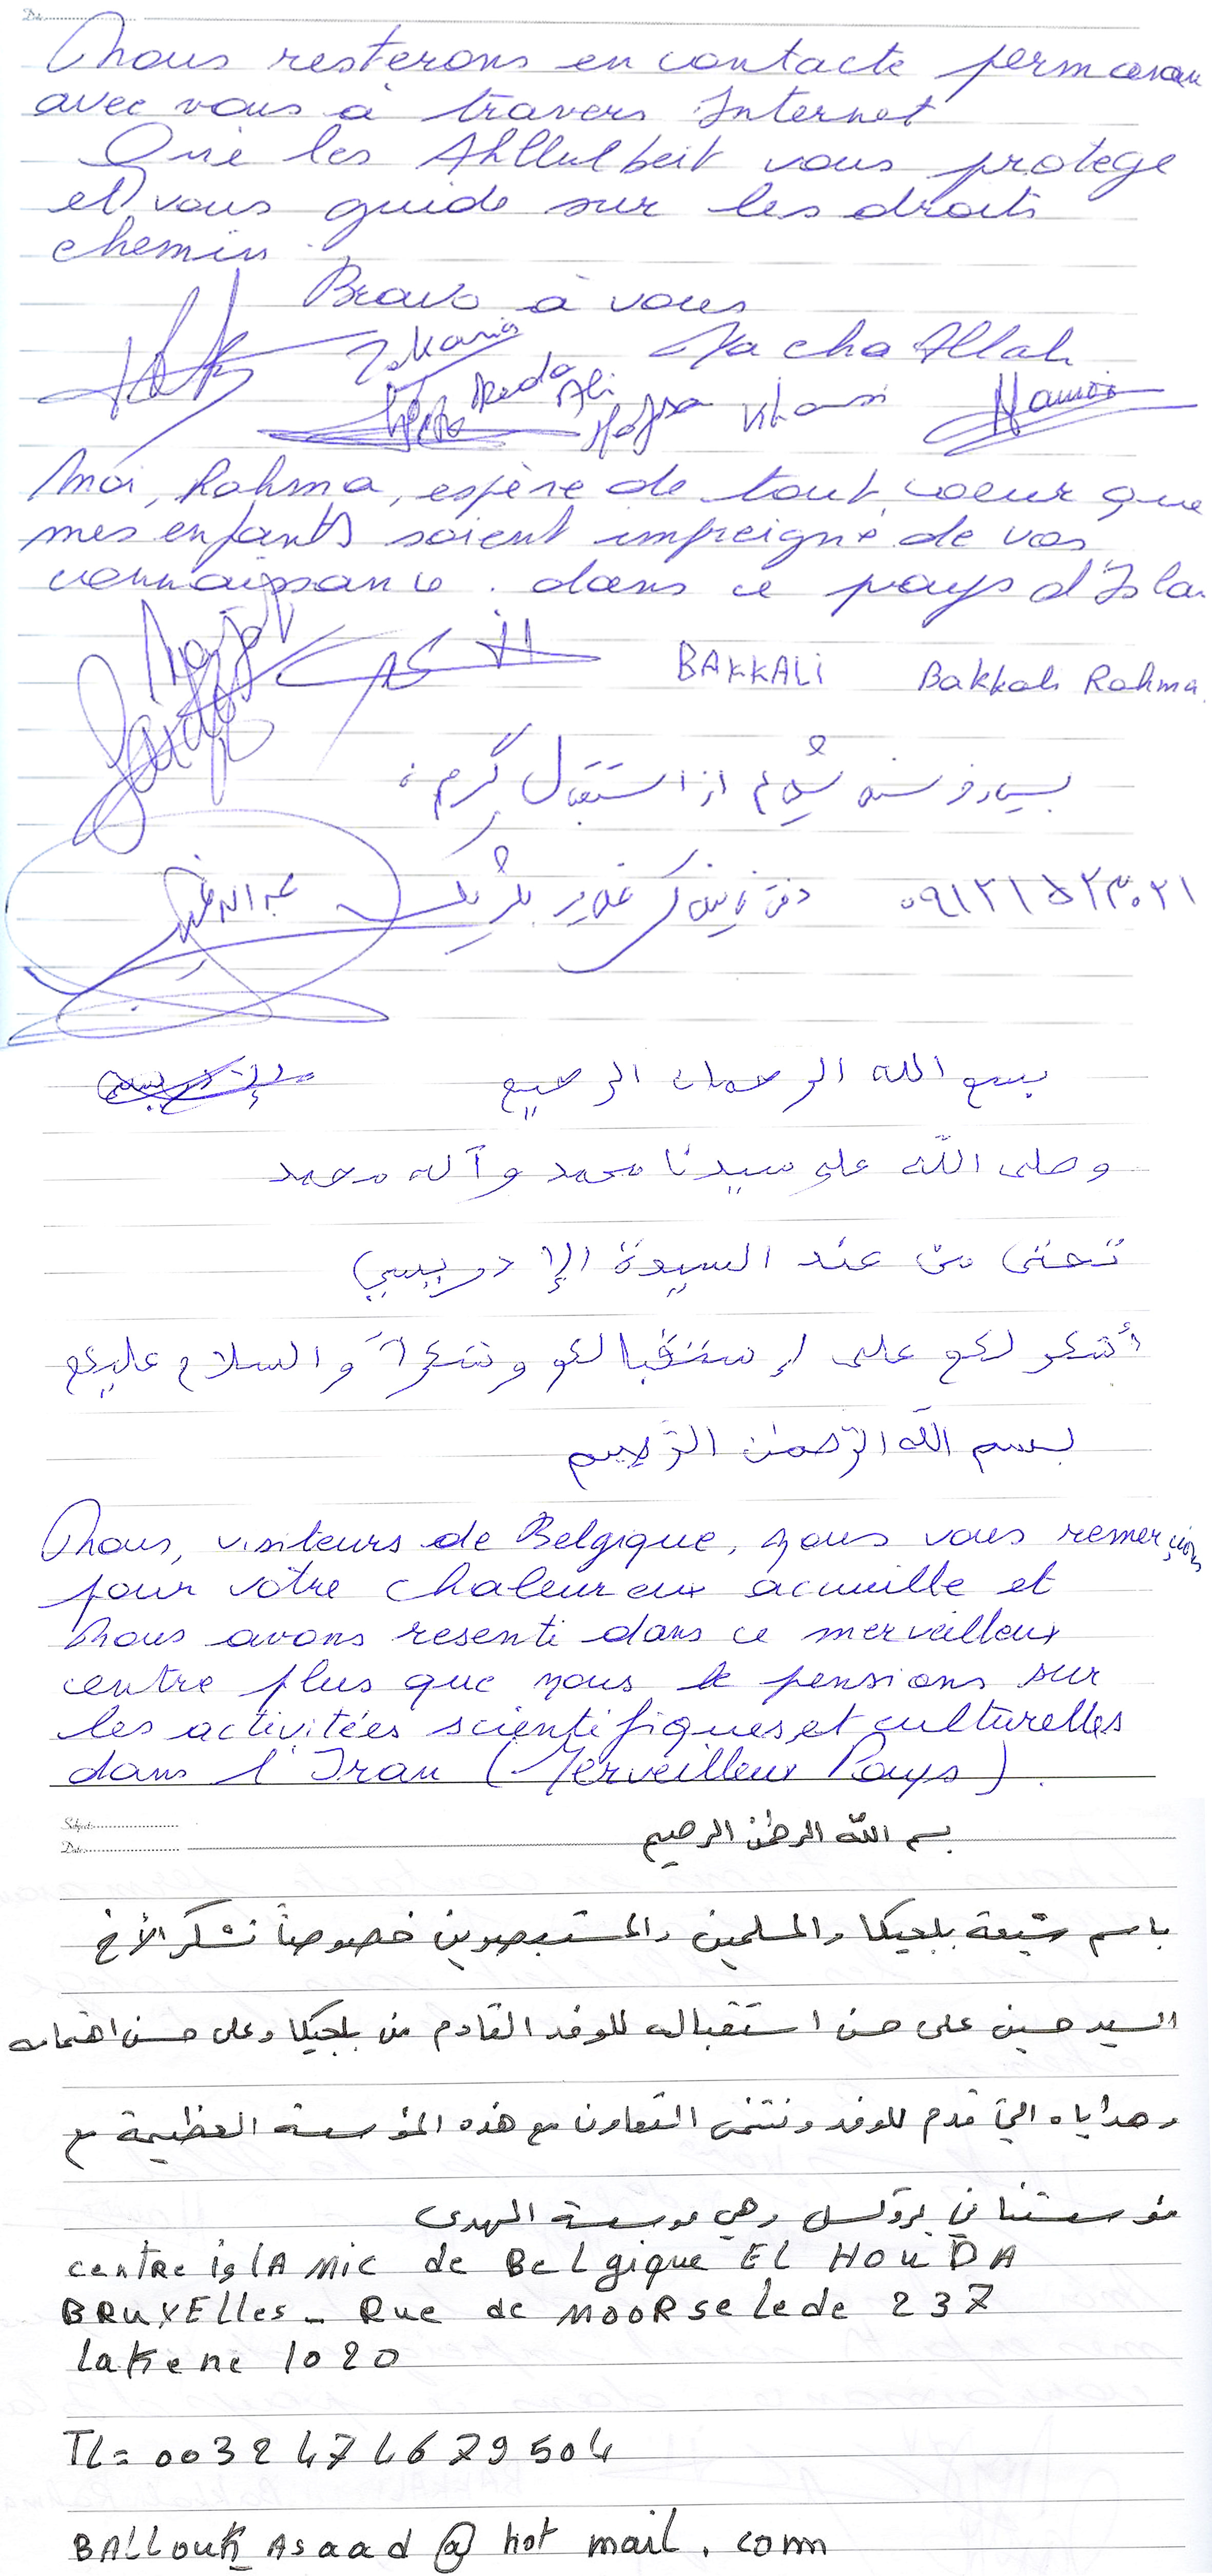 Nous resterons en contacte
avec vous à travers Internet
Que les Ahllulbeit vous protege
et vous guide sur les droits
chemin.
Bravo à vous
Macha Allah
Zakaria
Reda Ali
Hamid
Moi, Rahma, espère de tout coeur que
mes enfants soient impreigné de vos
connaissance. dans ce pays d'Isla
BAKKALI Bakkali Rahma.
از استقبال گرم
۰۹۱۲۱۵۲۳۰۲۱
بسم الله الرحمان الرحيم
وصلى اللّه على سيدنا محمد وآله محمد
من عند السيدة الإدريسي
أشكر لكم على إستقبالكم وشكراً والسلام عليكم
بسم اللّه الرّحمٰن الرّحيم
Nous, visiteurs de Belgique, nous vous remerçions
pour votre chaleureux acuuille et
Nous avons resenti dans ce merveilleux
centre plus que nous le pensions sur
les activitées scientifiques et culturelles
dans l'Iran (Merveilleux Pays).
Subject:
Date:
بسم اللّه الرحمٰن الرحيم
باسم شيعة بلجيكا والمسلمين والمستبصرين خصوصاً نشكر الأخ
السيد حسين على حسن استقباله للوفد القادم من بلجيكا وعلى حسن اهتمامه
وهداياه التي قدم للوفد ونتمنى التعاون مع هذه المؤسسة العظيمة مع
مؤسستنا في بروكسل وهي موسسة الهدى
centre islAmic de BeLgique EL HOUDA
BRUXElles - Rue de MOORselede 237
lakene 1020
TL= 0032474679504
BALLOUK_Asaad @ hot mail. com